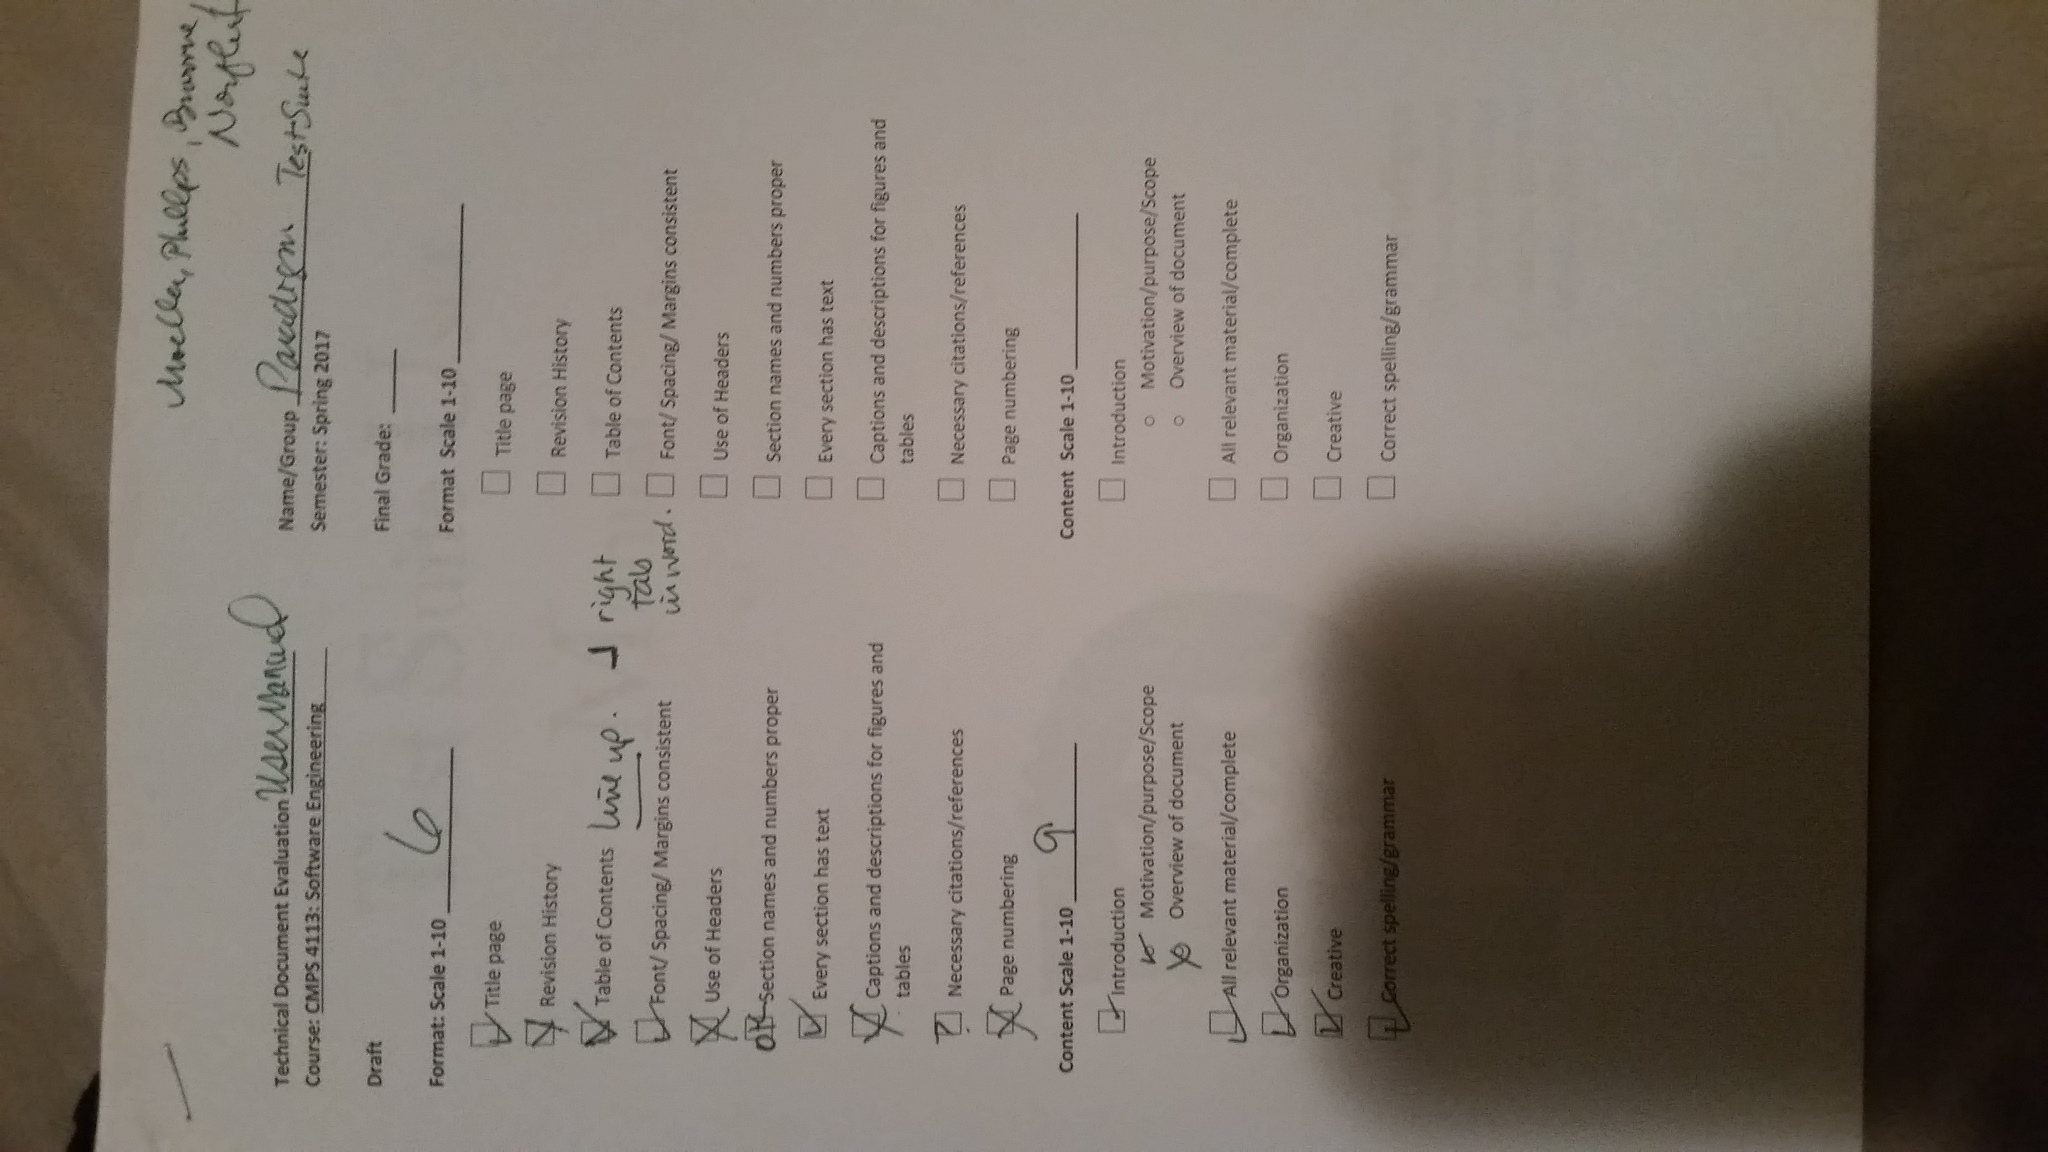 Moeller, Phillps,
Technical Document Evaluation User Manual
Course: CMPS 4113: Software Engineering
Name/Group Paradigm Test Suite
Semester: Spring 2017
Draft
Format: Scale 1-10 6
Title page
Revision History
Table of Contents Line up. right
tab
in word.
Font/ Spacing/ Margins consistent
Use of Headers
OK Section names and numbers proper
Every section has text
Captions and descriptions for figures and
tables
? Necessary citations/references
Page numbering
Content Scale 1-10 9
Introduction
Motivation/purpose/Scope
Overview of document
All relevant material/complete
Organization
Creative
Correct spelling/grammar
Final Grade: ____
Format Scale 1-10 ____
Title page
Revision History
Table of Contents
Font/ Spacing/ Margins consistent
Use of Headers
Section names and numbers proper
Every section has text
Captions and descriptions for figures and
tables
Necessary citations/references
Page numbering
Content Scale 1-10 ____
Introduction
Motivation/purpose/Scope
Overview of document
All relevant material/complete
Organization
Creative
Correct spelling/grammar